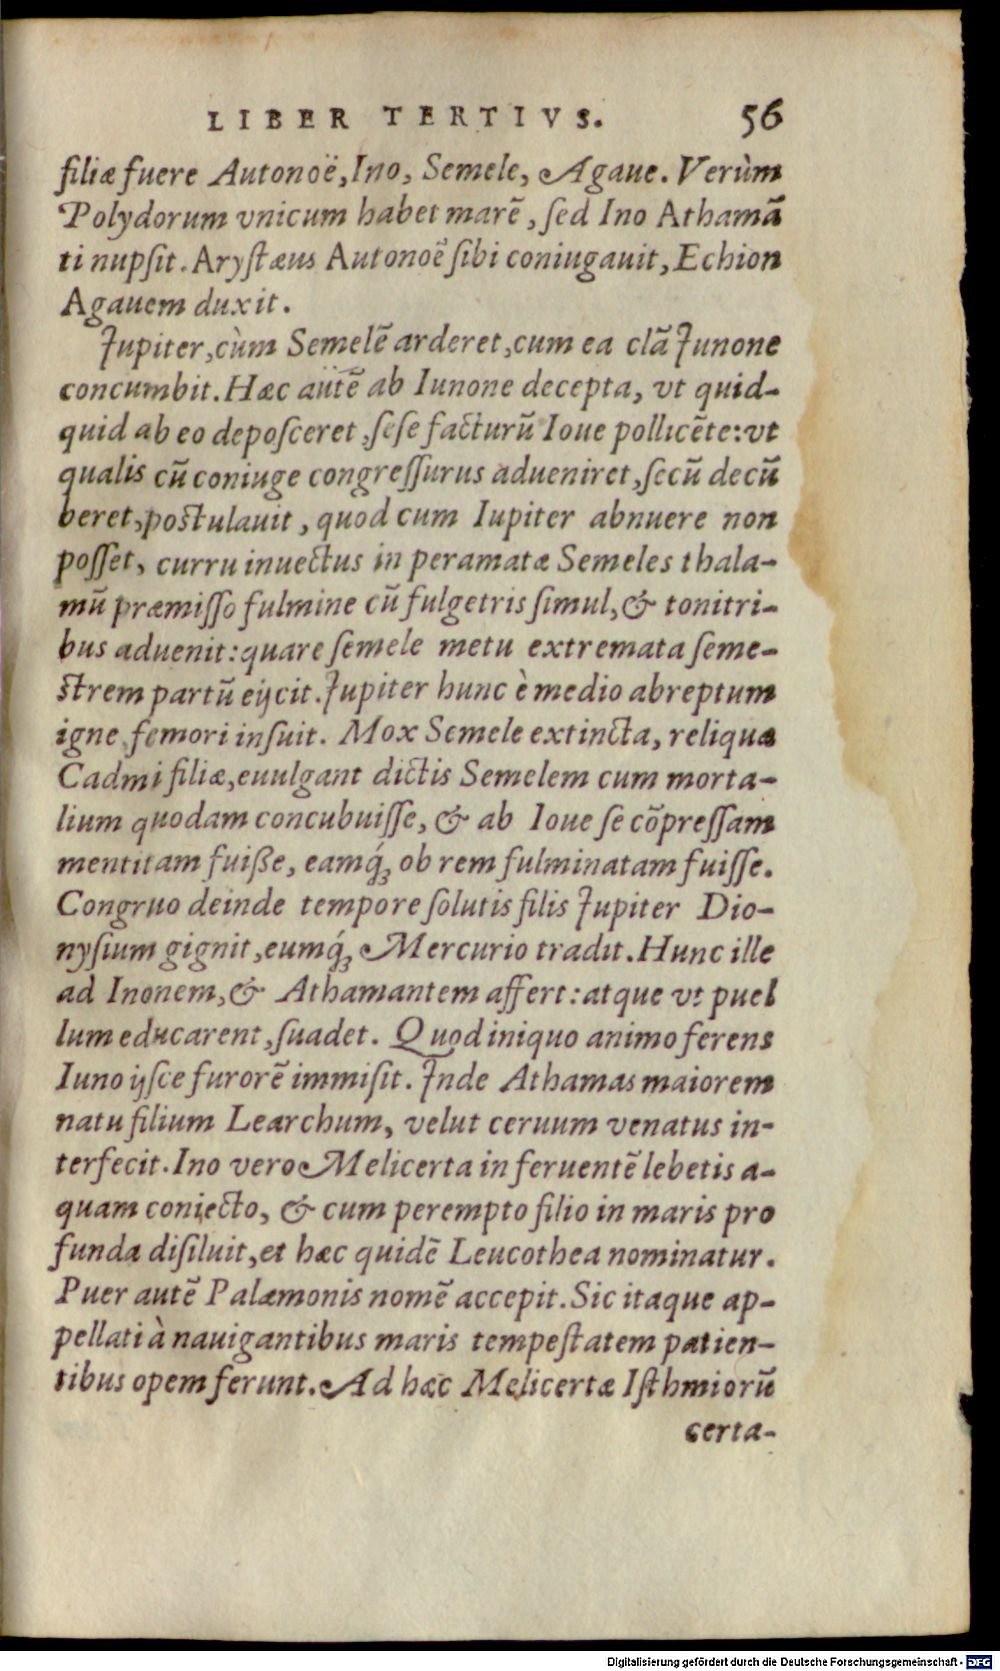 LIBER TERTIVS. 56
filiæ fuere Autonoë, Ino, Semele, Agaue. Verùm
Polydorum vnicum habet marē, sed Ino Athamā
ti nupsit. Arystæus Autonoē sibi coniugauit, Echion
Agauem duxit.
Jupiter, cùm Semelē arderet, cum ea clā Junone
concumbit. Hæc autē ab Iunone decepta, vt quid-
quid ab eo deposceret, sese facturū Ioue pollicēte: vt
qualis cū coniuge congressurus adueniret, secū decū
beret, postulauit, quod cum Iupiter abnuere non
posset, curru inuectus in peramatæ Semeles thala-
mū præmisso fulmine cū fulgetris simul, & tonitri-
bus aduenit: quare semele metu extremata seme-
strem partū eijcit. Jupiter hunc è medio abreptum
igne femori insuit. Mox Semele extincta, reliquæ
Cadmi filiæ, euulgant dictis Semelem cum morta-
lium quodam concubuisse, & ab Ioue se cōpressam
mentitam fuiße, eamq́ꝫ ob rem fulminatam fuisse.
Congruo deinde tempore solutis filis Jupiter Dio-
nysium gignit, eumq́ꝫ Mercurio tradit. Hunc ille
ad Inonem, & Athamantem affert: atque vt puel
lum educarent, suadet. Quod iniquo animo ferens
Iuno ijsce furorē immisit. Jnde Athamas maiorem
natu filium Learchum, velut ceruum venatus in-
terfecit. Ino vero Melicerta in feruentē lebetis a-
quam coniecto, & cum perempto filio in maris pro
funda disiluit, et hæc quidē Leucothea nominatur.
Puer autē Palæmonis nomē accepit. Sic itaque ap-
pellati à nauigantibus maris tempestatem patien-
tibus opem ferunt. Ad hæc Melicertæ Isthmiorū
certa-
Digitalisierung gefördert durch die Deutsche Forschungsgemeinschaft - DFG